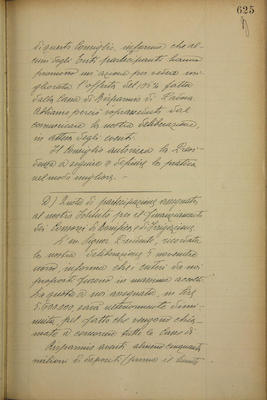 625
di questo Consiglio, informa che al-
cuni degli Enti partecipanti hanno
promosso un'azione per vedere mi-
gliorata l'offerta del 105% fatta
dalla Cassa di Risparmio di Roma.
Abbiamo perciò soprasseduto dal
comunicare la nostra deliberazione
in attesa degli eventi.
Il Consiglio autorizza la Presi-
denza a seguire e definire la pratica
nel modo migliore.
D) Quote di partecipazione assegnate
al nostro Istituto per il finanziamento
dei Consorzi di Bonifica e di Irrigazione.
Il Signor Presidente, ricordata
la nostra deliberazione 5 novembre
informa che i criteri da noi
proposti furono in massima accolti.
La quota a noi assegnata, in lire
5.600.000, sarà ulteriormente dimi-
nuita, pel fatto che vengono chia-
mate a concorso tutte le Casse di
Risparmio aventi almeno cinquanta
milioni di depositi (prima il limite